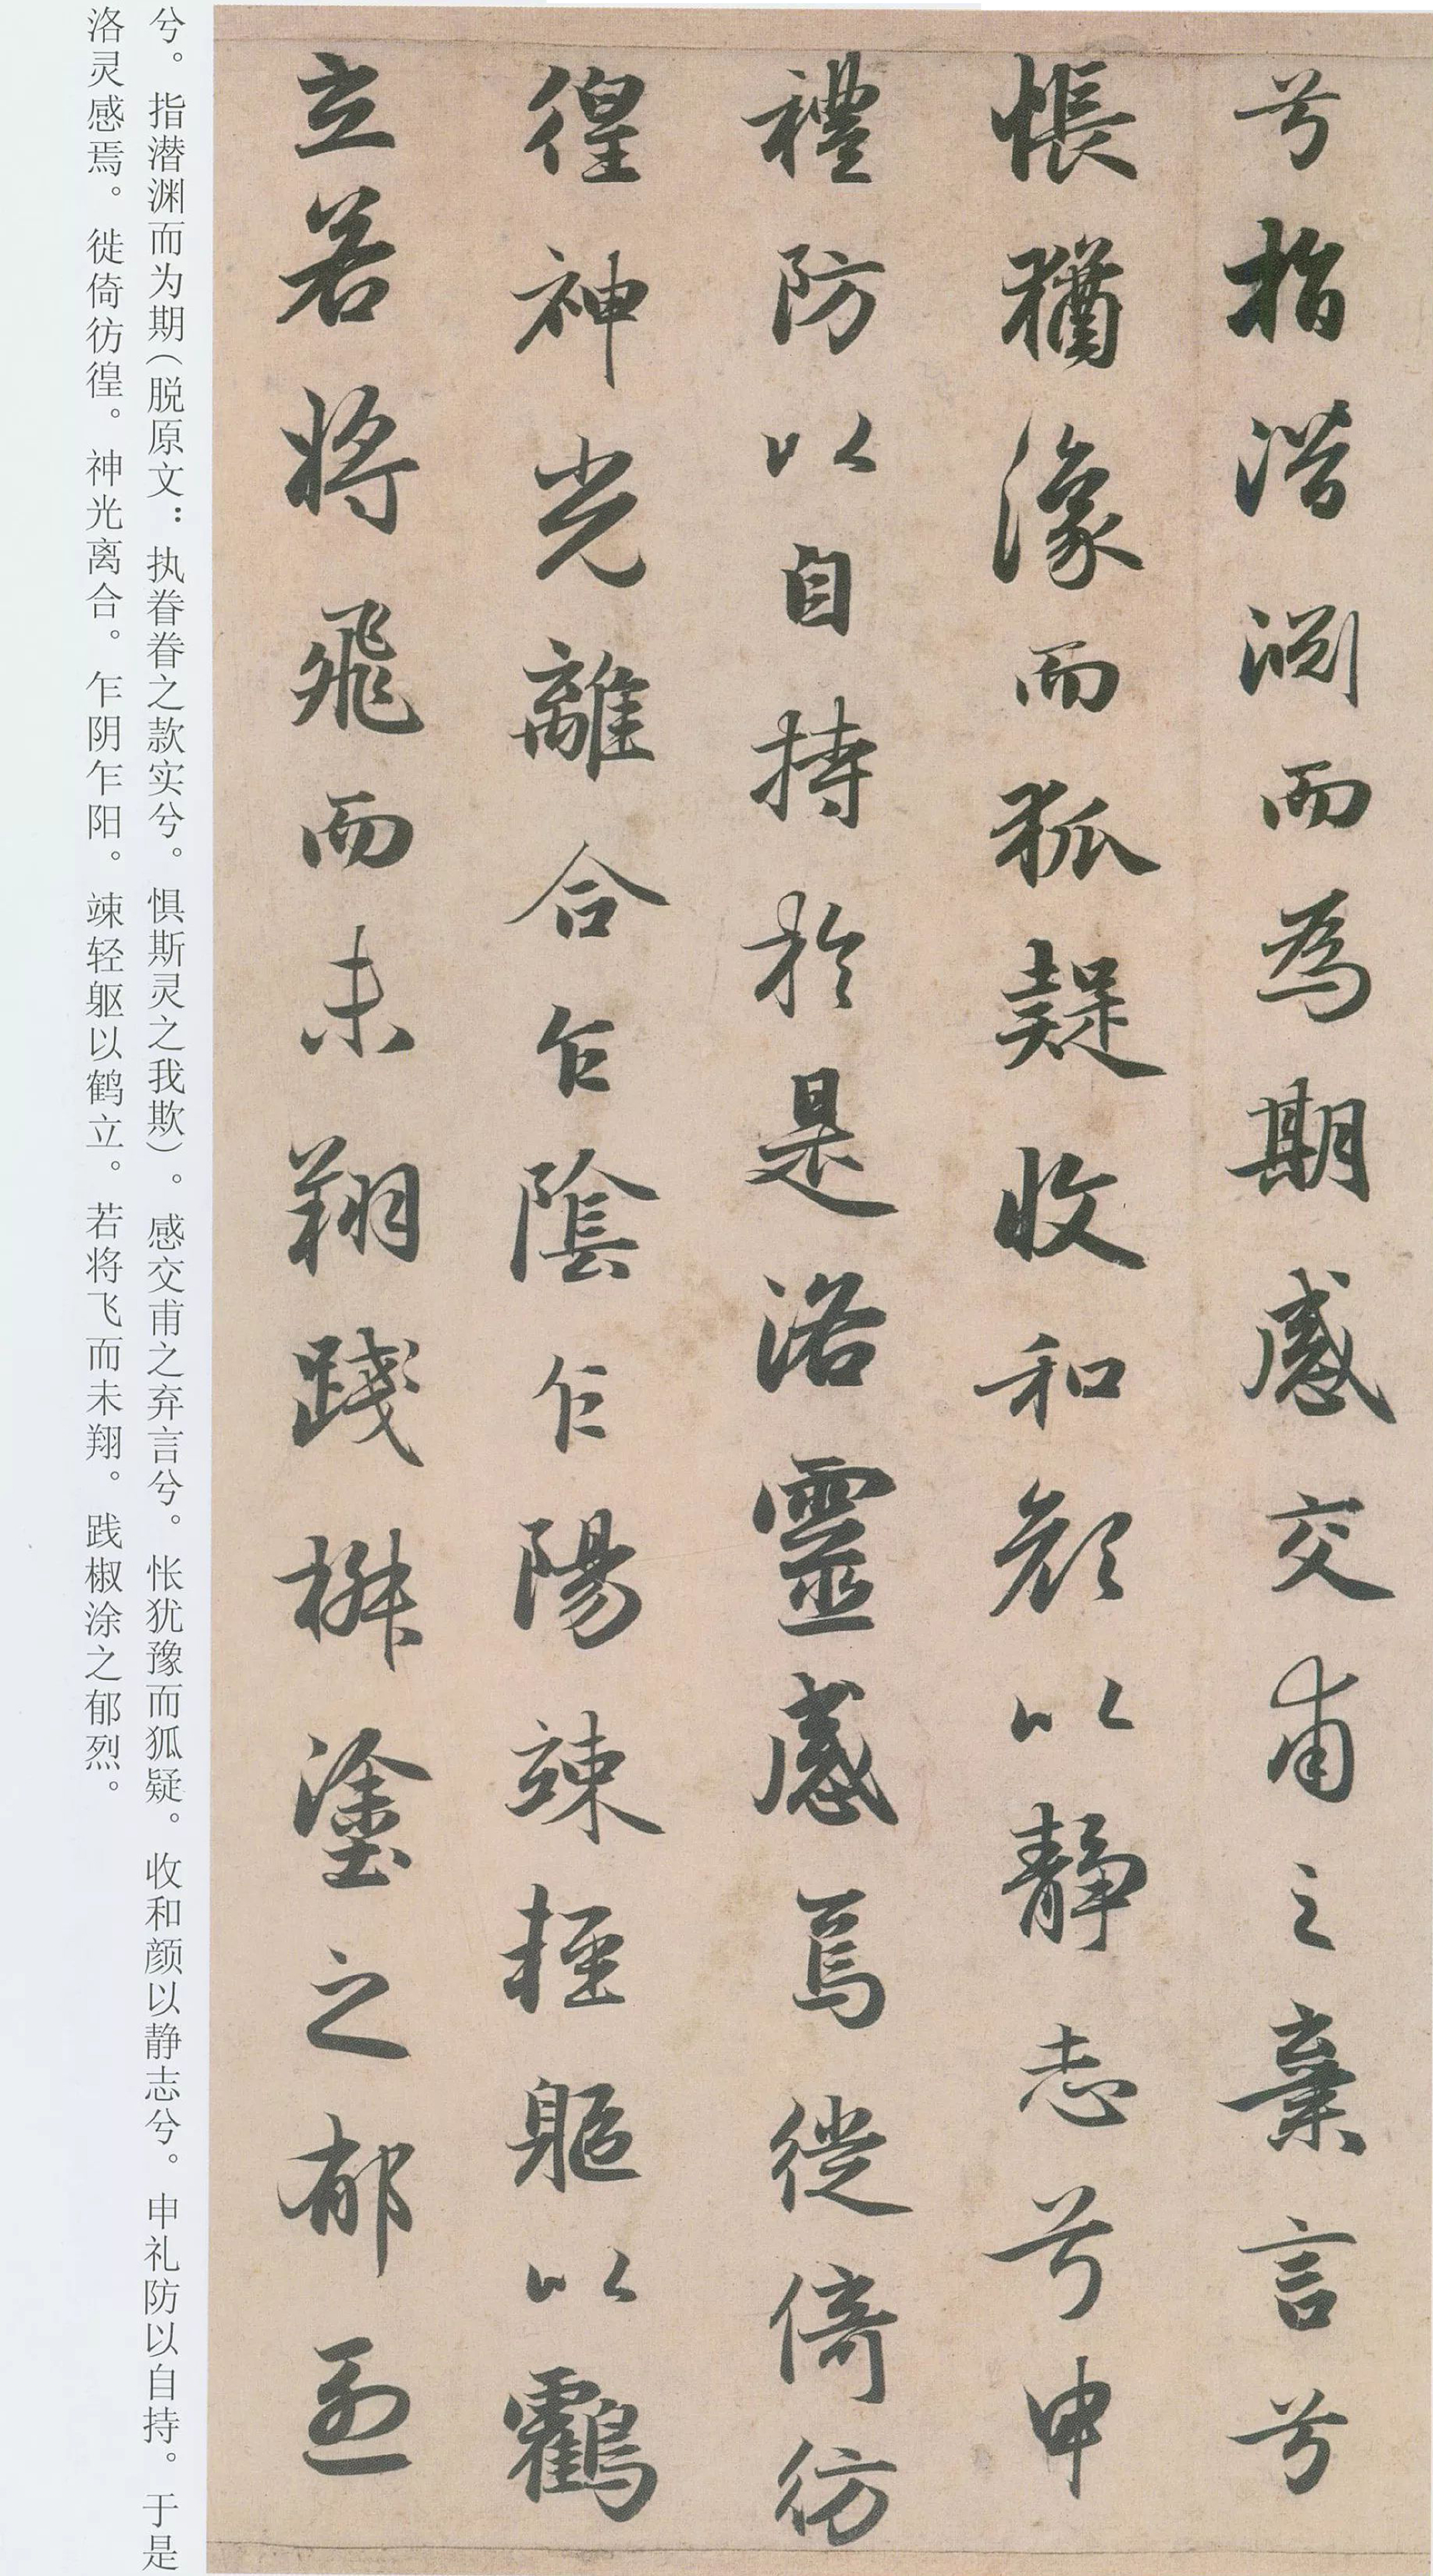 兮指潛渊而為期感交甫之棄言兮
悵猶豫而狐疑收和顔以靜志兮申
禮防以自持於是洛靈感焉徙倚彷
徨神光離合乍陰乍陽竦輕軀以鸖
立若將飛而未翔踐椒塗之郁烈
兮。指潜渊而为期(脱原文：执眷眷之款实兮。惧斯灵之我欺)。感交甫之弃言兮。怅犹豫而狐疑。收和颜以静志兮。申礼防以自持。于是
洛灵感焉。徙倚彷徨。神光离合。乍阴乍阳。竦轻躯以鹤立。若将飞而未翔。践椒涂之郁烈。